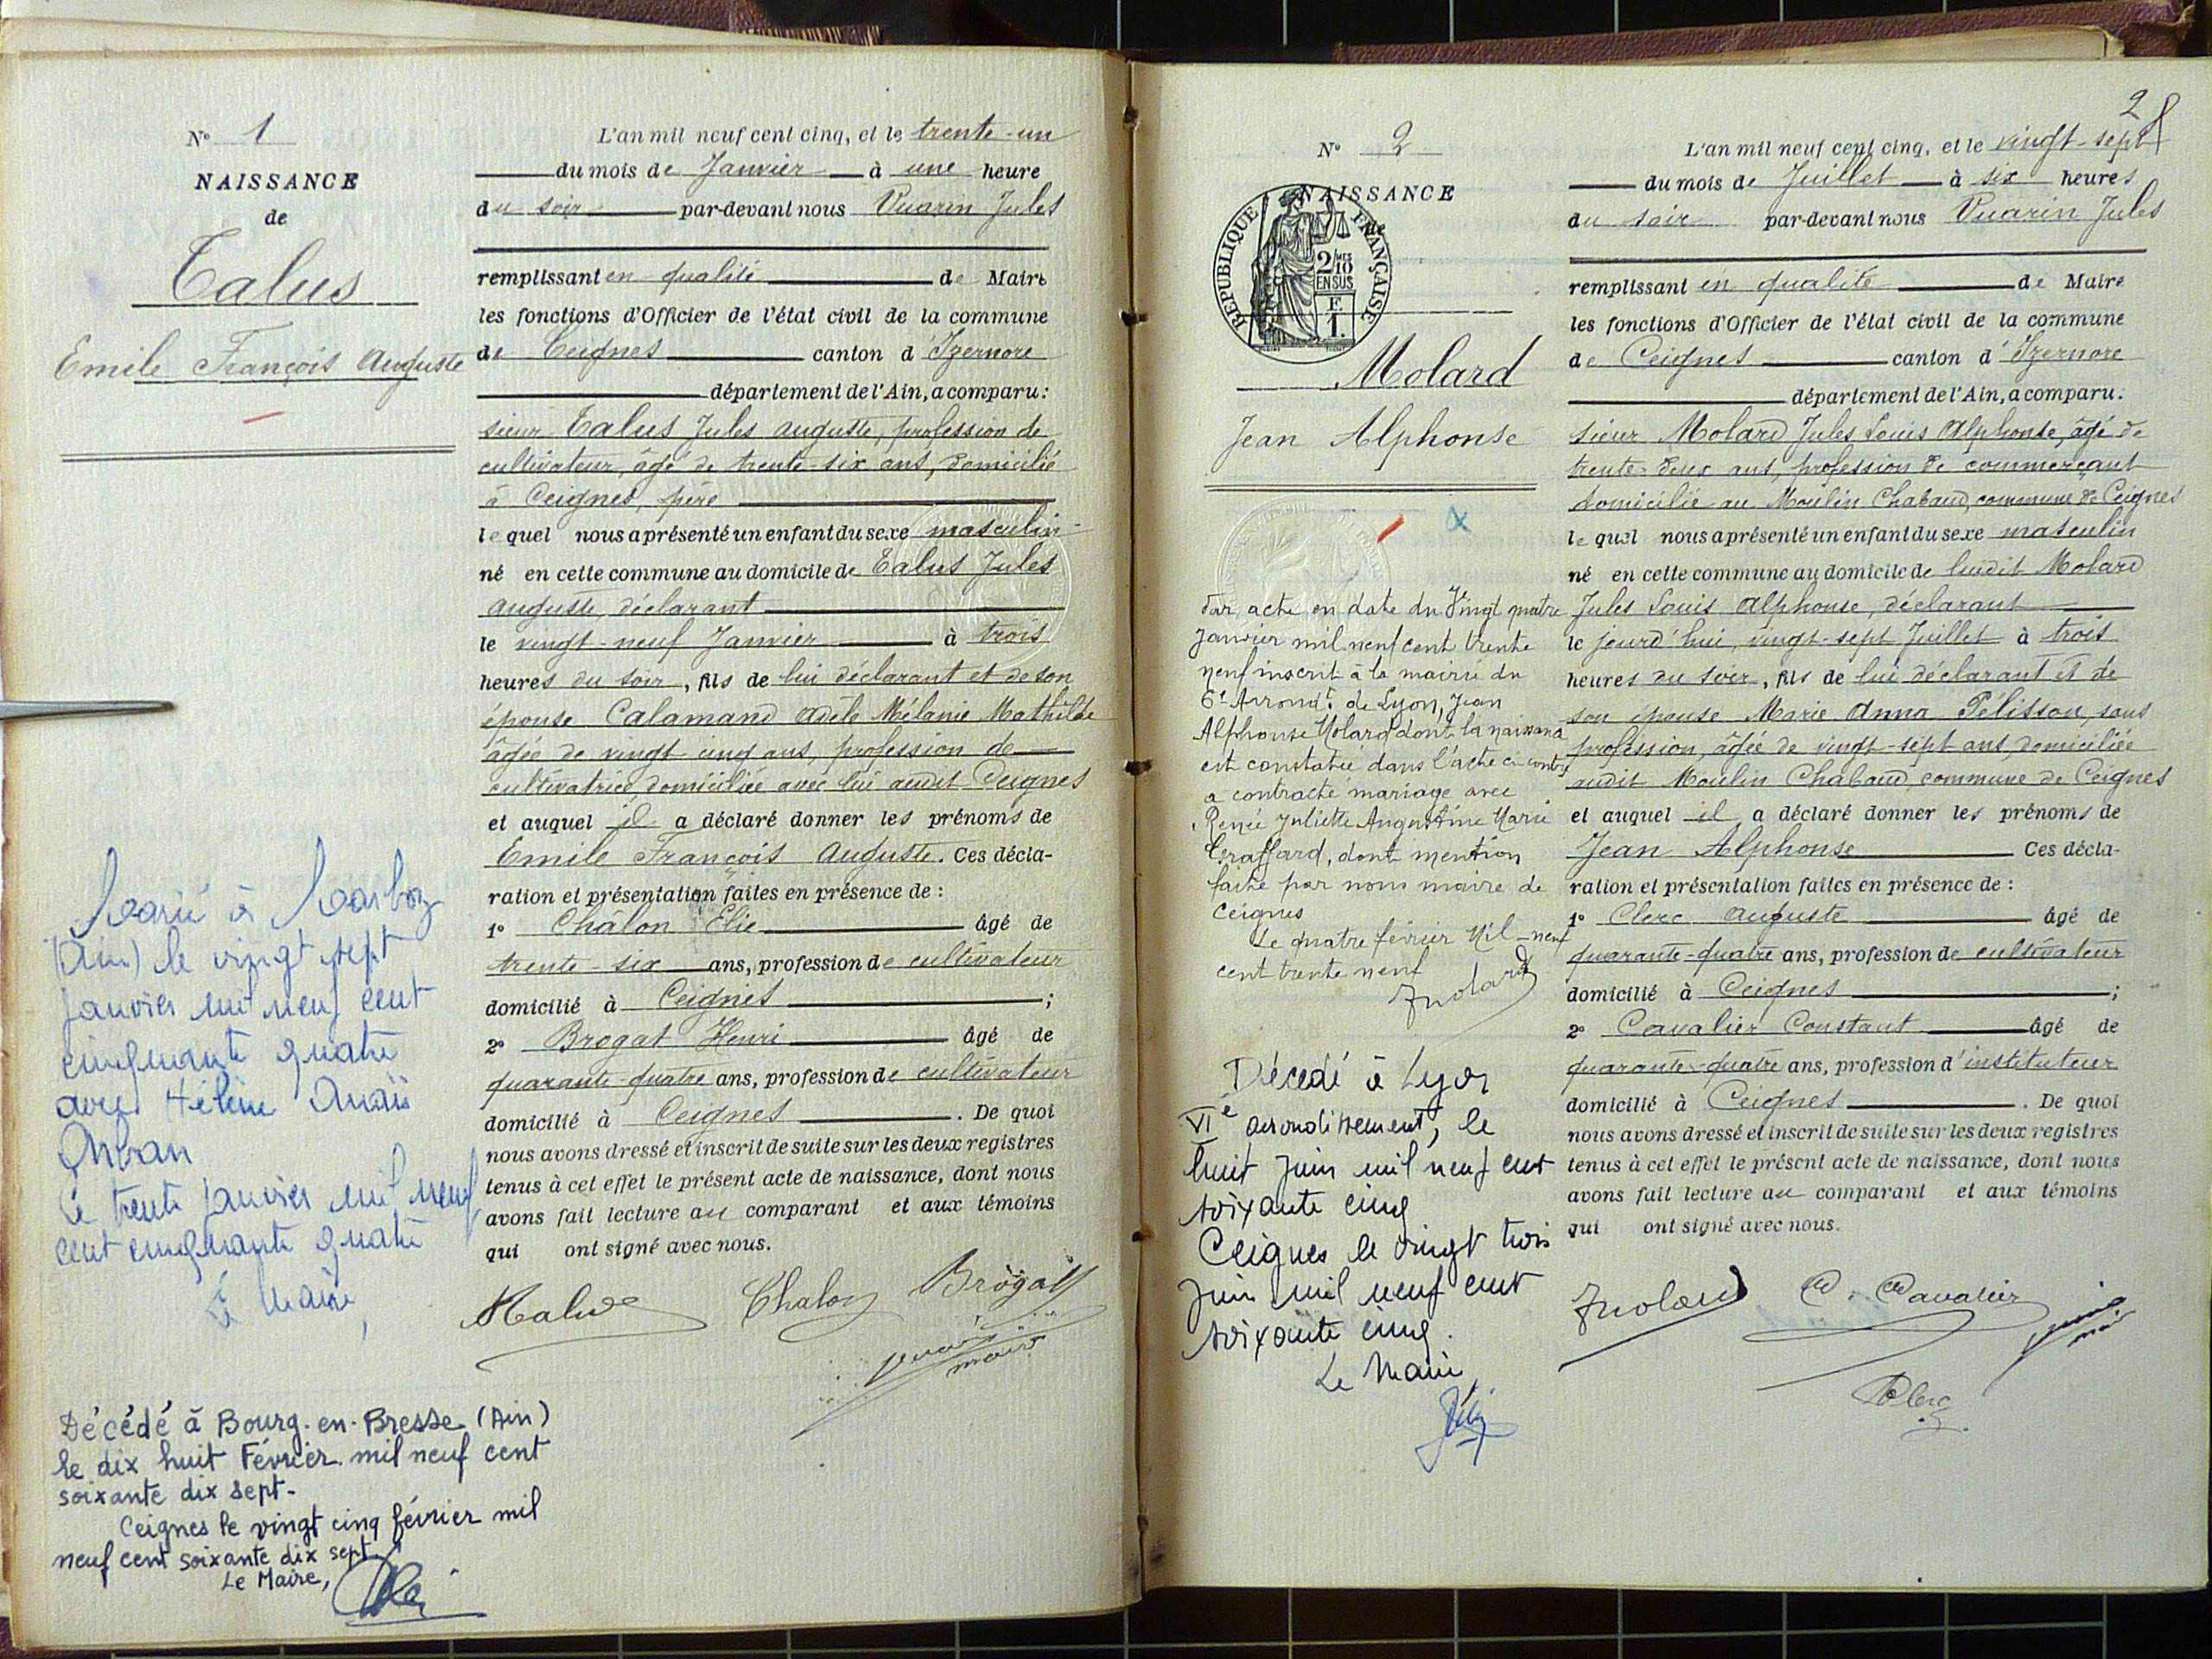 N° 1
NAISSANCE
de
Talus
Emile François Auguste
L'an mil neuf cent cinq, et le trente-un
du mois de Janvier à une heure
du soir par-devant nous Vuarin Jules
remplissant en qualité de Maire
les fonctions d'Officier de l'état civil de la commune
de Ceignes canton d'Izernore
département de l'Ain, a comparu:
sieur Talus Jules auguste, profession de
cultivateur, âgé de trente-six ans, domicilié
à Ceignes, père
lequel nous a présenté un enfant du sexe masculin
né en cette commune au domicile de Talus Jules
auguste, déclarant
le vingt-neuf Janvier à trois
heures du soir, fils de lui déclarant et de son
épouse Calamand adèle Mélanie Mathilde
âgée de vingt cinq ans, profession de
cultivatrice, domiciliée avec lui audit Ceignes
et auquel il a déclaré donner les prénoms de
Emile François Auguste. Ces décla-
ration et présentation faites en présence de :
1° Châlon Elie âgé de
trente-six ans, profession de cultivateur
domicilié à Ceignes ;
2° Brogat Henri âgé de
quarante-quatre ans, profession de cultivateur
domicilié à Ceignes. De quoi
nous avons dressé et inscrit de suite sur les deux registres
tenus à cet effet le présent acte de naissance, dont nous
avons fait lecture au comparant et aux témoins
qui ont signé avec nous.
Talus Chalon Brogat
Vuarin
maire
Marié à Marboz
(Ain) le vingt sept
Janvier mil neuf cent
cinquante quatre
avec Hélène Anaïs
Le trente Janvier mil neuf
cent cinquante quatre
Le Maire,
Décédé à Bourg-en-Bresse (Ain)
le dix huit Février mil neuf cent
soixante dix sept-
Ceignes le vingt cinq février mil
neuf cent soixante dix sept
Le Maire,
2
N° 2
NAISSANCE
de
REPUBLIQUE FRANÇAISE
2/10 MES
EN SUS
E
1.
Molard
Jean Alphonse
L'an mil neuf cent cinq, et le vingt-sept
du mois de Juillet à six heures
du soir par-devant nous Vuarin Jules
remplissant en qualité de Maire
les fonctions d'Officier de l'état civil de la commune
de Ceignes canton d'Izernore
département de l'Ain, a comparu:
sieur Molard Jules Louis Alphonse, âgé de
trente-deux ans, profession de commerçant
domicilié au Moulin Chabaud, commune de Ceignes
lequel nous a présenté un enfant du sexe masculin
né en cette commune au domicile de ludit Molard
Jules Louis Alphonse, déclarant
le jourd'hui, vingt-sept Juillet à trois
heures du soir, fils de lui déclarant et de
son épouse Marie Anna Pélisson, sans
profession, âgée de vingt-sept ans, domiciliée
audit Moulin Chabaud, commune de Ceignes
et auquel il a déclaré donner les prénoms de
Jean Alphonse Ces décla-
ration et présentation faites en présence de :
1° Clerc Auguste âgé de
quarante-quatre ans, profession de cultivateur
domicilié à Ceignes ;
2° Cavalier Constant âgé de
quarante-quatre ans, profession d'instituteur
domicilié à Ceignes. De quoi
nous avons dressé et inscrit de suite sur les deux registres
tenus à cet effet le présent acte de naissance, dont nous
avons fait lecture au comparant et aux témoins
qui ont signé avec nous.
Molard C. Cavalier
Vuarin
maire
Clerc
Par acte en date du Vingt quatre
Janvier mil neuf cent trente
neuf inscrit à la mairie du
6e Arrondt de Lyon, Jean
Alphonse Molard dont la naissance
est constatée dans l'acte ci-contre
a contracté mariage avec
Renée Juliette Augustine Marie
Graffard, dont mention
faite par nous maire de
Ceignes
Le quatre février Mil-neuf
cent trente neuf
Molard
Décédé à Lyon
VIe arrondissement, le
huit Juin mil neuf cent
soixante cinq
Ceignes le vingt trois
Juin mil neuf cent
soixante cinq.
Le Maire